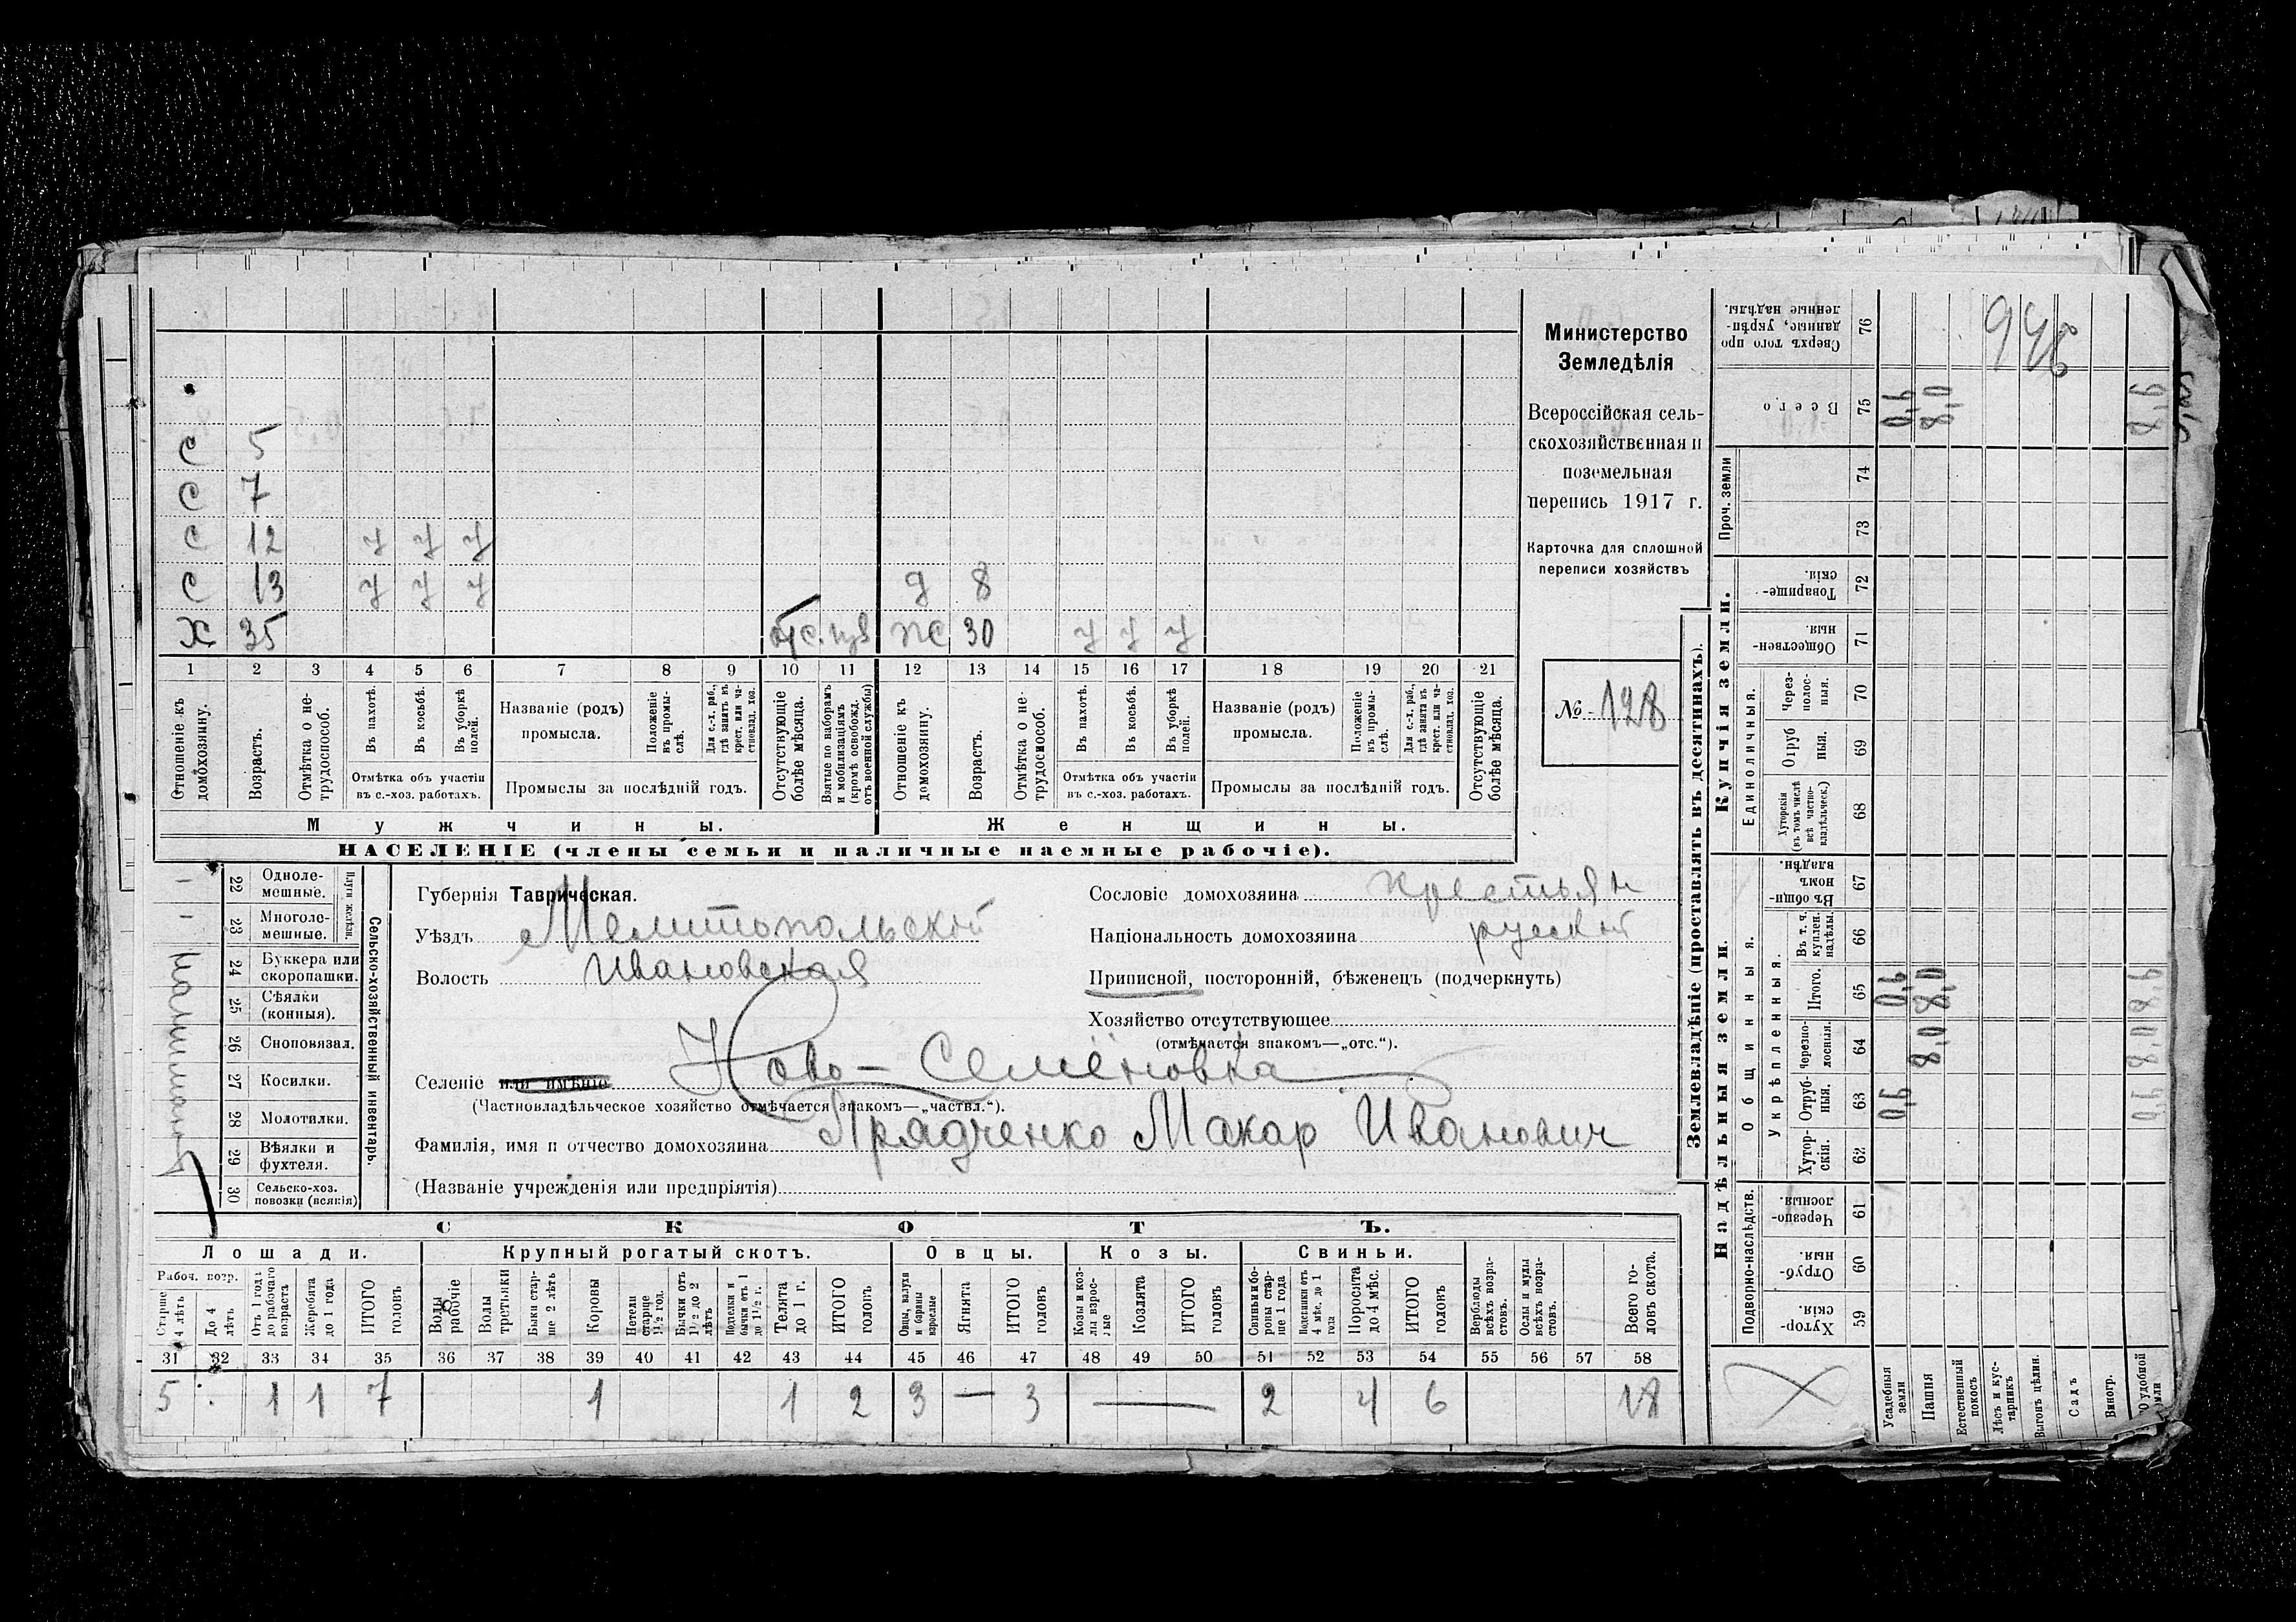 С 5
С 7
С 12 у у у
С 13 у у у д 8
Х 35 отс. пс 30 у у у
1 2 3 4 5 6 7 8 9 10 11 12 13 14 15 16 17 18 19 20 21
Отношеніе къ домохозяину.
Возрастъ.
Отмѣтка о нетрудоспособ.
Въ пахотѣ.
Въ косьбѣ.
Въ уборкѣ полей.
Отмѣтка объ участіи въ с.-хоз. работахъ.
Названіе (родъ) промысла.
Положеніе въ промыслѣ.
Для с.-х. раб., гдѣ занятъ въ крест. или частновлад. хоз.
Промыслы за послѣдній годъ.
Отсутствующіе болѣе мѣсяца.
Взятые по наборамъ и мобилизаціямъ (кромѣ освобожд. отъ военной службы)
Отношеніе къ домохозяину.
Возрастъ.
Отмѣтка о нетрудоспособ.
Въ пахотѣ.
Въ косьбѣ.
Въ уборкѣ полей.
Отмѣтка объ участіи въ с.-хоз. работахъ.
Названіе (родъ) промысла.
Положеніе въ промыслѣ.
Для с.-х. раб., гдѣ занята въ крест. или частновлад. хоз.
Промыслы за послѣдній годъ.
Отсутствующіе болѣе мѣсяца.
Мужчины. Женщины.
НАСЕЛЕНІЕ (члены семьи и наличные наемные рабочіе).
Министерство
Земледѣлія
Всероссійская сель-
скохозяйственная и
поземельная
перепись 1917 г.
Карточка для сплошной
переписи хозяйствъ
№ 128
22 Однолемешные.
23 Многолемешные.
Плуги желѣзн.
24 Буккера или скоропашки.
25 Сѣялки (конныя).
26 Сноповязал.
27 Косилки.
28 Молотилки.
29 Вѣялки и фухтеля.
30 Сельско-хоз. повозки (всякія)
Сельско-хозяйственный инвентарь.
Губернія Таврическая.
Уѣздъ Мелитопольский
Волость Ивановская
Селеніе или имѣніе Ново-Семёновка
(Частновладѣльческое хозяйство отмѣчается знакомъ—„частвл.“).
Фамилія, имя и отчество домохозяина Прядченко Макар Иванович
(Названіе учрежденія или предпріятія)
Сословіе домохозяина крестьян
Національность домохозяина руский
Приписной, посторонній, бѣженецъ (подчеркнуть)
Хозяйство отсутствующее
(отмѣчается знакомъ—„отс.“).
СКОТЪ.
Лошади. Крупный рогатый скотъ. Овцы. Козы. Свиньи.
Рабоч. возр.
Старше 4 лѣтъ
До 4 лѣтъ
Отъ 1 года до рабочаго возраста
Жеребята до 1 года
ИТОГО головъ
Волы рабочіе
Волы третьяки
Быки старше 2 лѣтъ
Коровы
Нетели старше 1½ год.
Бычки отъ 1½ до 2 лѣтъ
Подтелки и бычки отъ 1 до 1½ г.
Телята до 1 г.
ИТОГО головъ
Овцы, валухи и бараны взрослые
Ягнята
ИТОГО головъ
Козы и козлы взрослые
Козлята
ИТОГО головъ
Свиньи и боровы старше 1 года
Подсвинки отъ 4 мѣс. до 1 года
Поросята до 4 мѣс.
ИТОГО головъ
Верблюды всѣхъ возрастовъ.
Ослы и мулы всѣхъ возрастовъ.
Всего головъ скота.
31 32 33 34 35 36 37 38 39 40 41 42 43 44 45 46 47 48 49 50 51 52 53 54 55 56 57 58
5 1 1 7 1 1 2 3 — 3 — 2 4 6 18
Землевладѣніе (проставлять въ десятинахъ).
Купчія земли.
Надѣльныя земли.
Проч. земли
Единоличныя.
Общинныя.
Укрѣпленныя.
Подворно-наслѣдств.
Сверхъ того проданные, укрѣпленные надѣлы. 76
Всего 75 0,9 8,0 8,9
74
73
Товарищескія. 72
Общественныя. 71
Черезполосныя. 70
Отрубныя. 69
Хуторскія (въ томъ числѣ всѣ частновладѣльческ.) 68
Въ общинномъ владѣн. 67
Въ т. ч. куплен. надѣлы. 66
Итого. 65 0,9 8,0 8,9
Черезполосныя. 64 8,0 8,0
Отрубныя. 63 0,9 0,9
Хуторскія. 62
Черезполосныя. 61
Отрубныя. 60
Хуторскія. 59
Усадебныя земли
Пашня
Естественный покосъ
Лѣсъ и кустарникъ
Выгонъ цѣлин.
Садъ
Виногр.
946